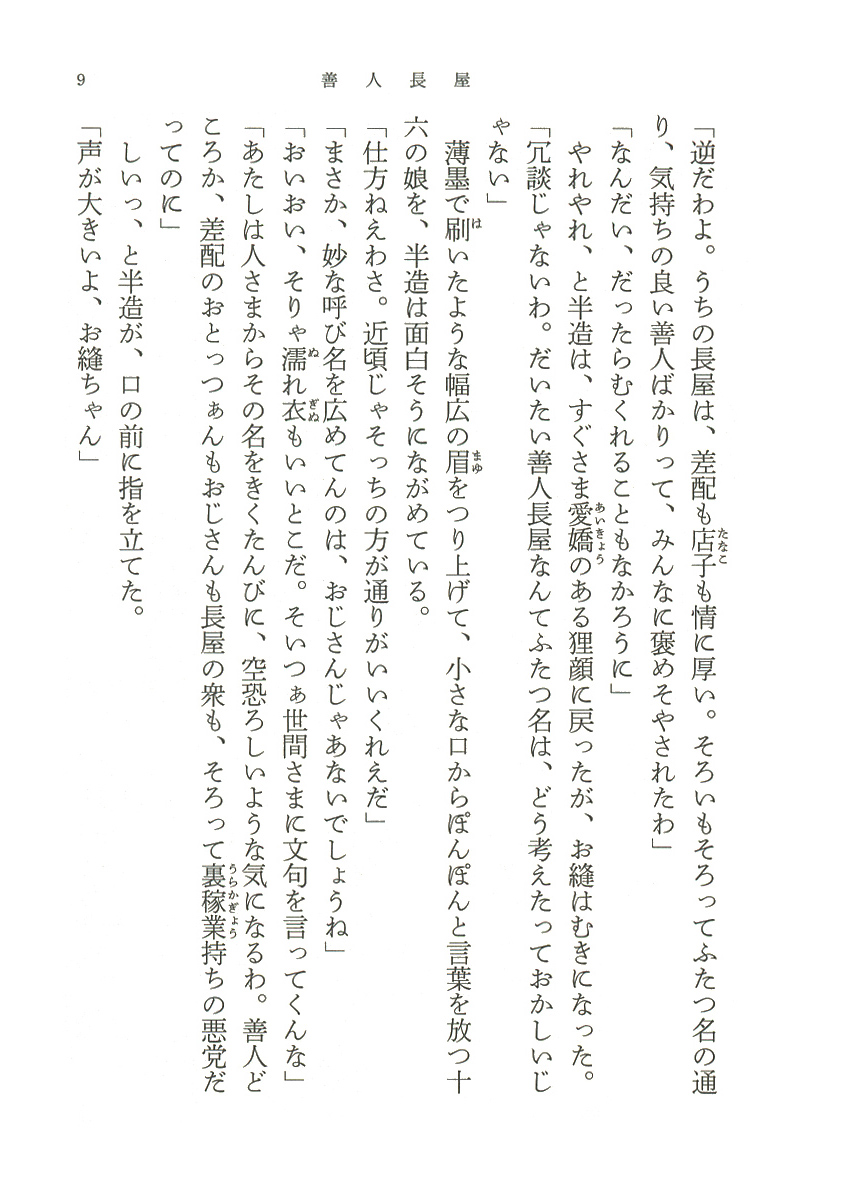 9
善人長屋
「逆だわよ。うちの長屋は、差配も店子も情に厚い。そろいもそろってふたつ名の通
り、気持ちの良い善人ばかりって、みんなに褒めそやされたわ」
「なんだい、だったらむくれることもなかろうに」
やれやれ、と半造は、すぐさま愛嬌のある狸顔に戻ったが、お縫はむきになった。
「冗談じゃないわ。だいたい善人長屋なんてふたつ名は、どう考えたっておかしいじ
ゃない」
薄墨で刷いたような幅広の眉をつり上げて、小さな口からぽんぽんと言葉を放つ十
六の娘を、半造は面白そうにながめている。
「仕方ねえわさ。近頃じゃそっちの方が通りがいいくれえだ」
「まさか、妙な呼び名を広めてんのは、おじさんじゃあないでしょうね」
「おいおい、そりゃ濡れ衣もいいとこだ。そいつぁ世間さまに文句を言ってくんな」
「あたしは人さまからその名をきくたんびに、空恐ろしいような気になるわ。善人ど
ころか、差配のおとっつぁんもおじさんも長屋の衆も、そろって裏稼業持ちの悪党だ
ってのに」
しいっ、と半造が、口の前に指を立てた。
「声が大きいよ、お縫ちゃん」